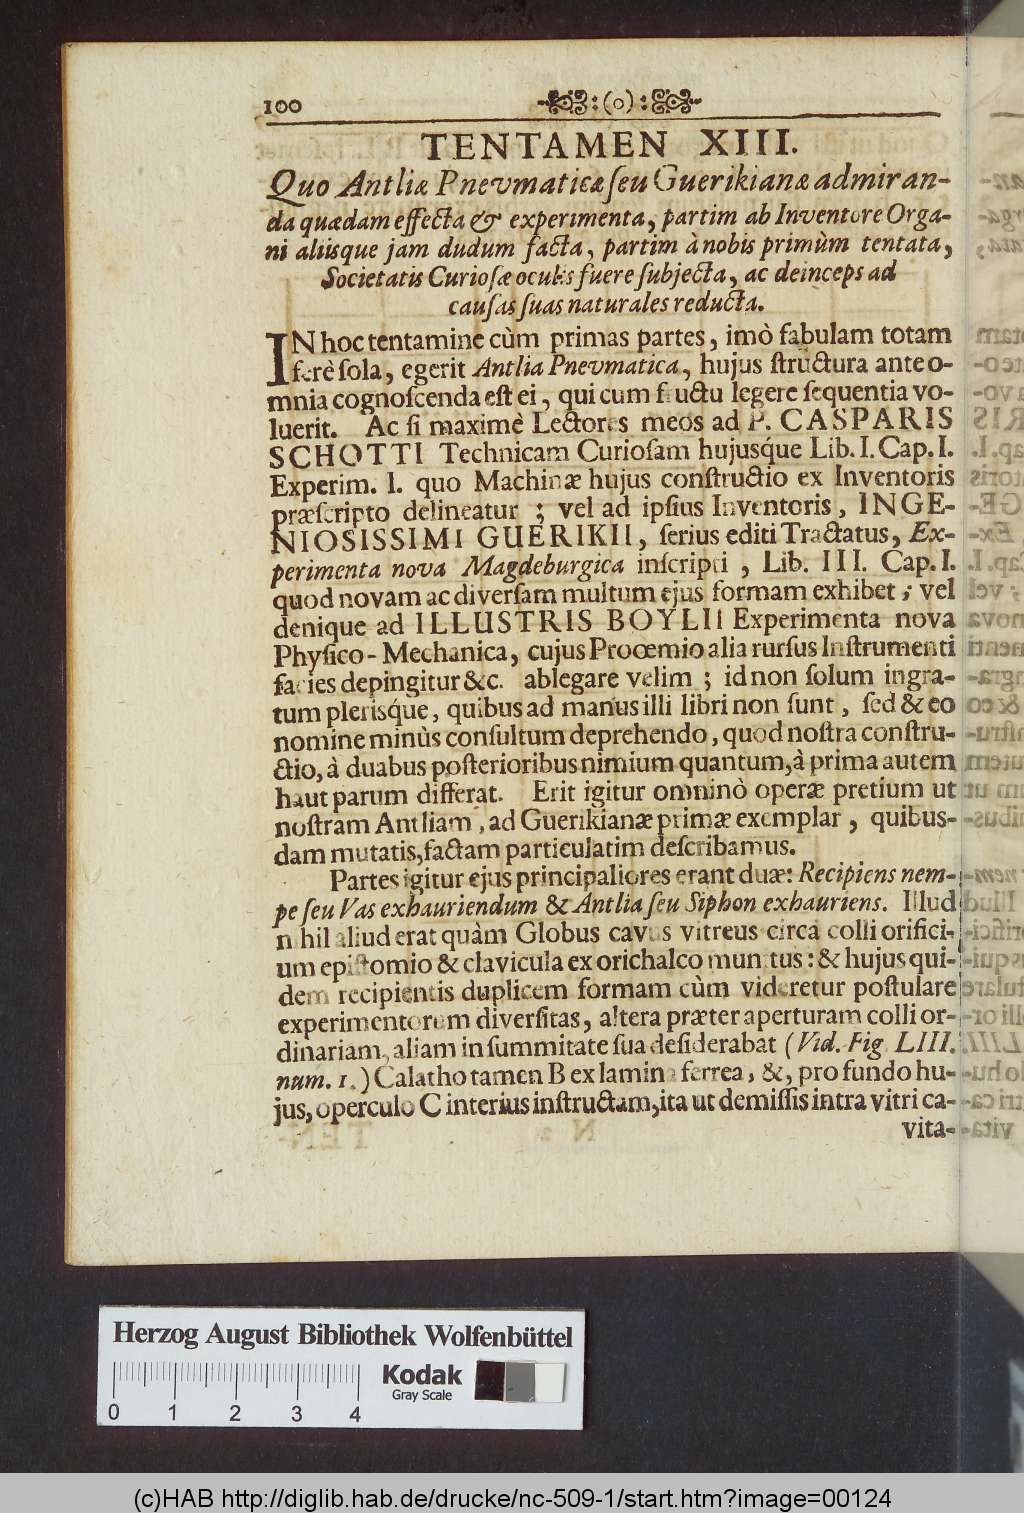 100 :(o):
TENTAMEN XIII.
Quo Antliæ Pnevmaticæ ſeu Guerikianæ admiran-
da quædam effecta & experimenta, partim ab Inventore Orga-
ni aliisque jam dudum facta, partim à nobis primùm tentata,
Societatis Curioſæ oculis fuere ſubjecta, ac deinceps ad
cauſas ſuas naturales reducta.
IN hoc tentamine cùm primas partes, imò fabulam totam
ferè ſola, egerit Antlia Pnevmatica, hujus ſtructura ante o-
mnia cognoſcenda eſt ei, qui cum fructu legere ſequentia vo-
luerit. Ac ſi maximè Lectores meos ad P. CASPARIS
SCHOTTI Technicam Curioſam hujusq́ue Lib. I. Cap. I.
Experim. I. quo Machinæ hujus conſtructio ex Inventoris
præſcripto delineatur ; vel ad ipſius Inventoris, INGE-
NIOSISSIMI GUERIKII, ſerius editi Tractatus, Ex-
perimenta nova Magdeburgica inſcripti , Lib. III. Cap. I.
quod novam ac diverſam multum ejus formam exhibet ; vel
denique ad ILLUSTRIS BOYLII Experimenta nova
Phyſico-Mechanica, cujus Prooemio alia rurſus Inſtrumenti
facies depingitur &c. ablegare velim ; id non ſolum ingra-
tum plerisq́ue, quibus ad manus illi libri non ſunt, ſed & eo
nomine minùs conſultum deprehendo, quod noſtra conſtru-
ctio, à duabus poſterioribus nimium quantum, à prima autem
haut parum differat. Erit igitur omninò operæ pretium ut
noſtram Antliam, ad Guerikianæ primæ exemplar, quibus-
dam mutatis, factam particulatim deſcribamus.
Partes igitur ejus principaliores erant duæ: Recipiens nem-
pe ſeu Vas exhauriendum & Antlia ſeu Siphon exhauriens. Illud
nihil aliud erat quàm Globus cavus vitreus circa colli orifici-
um epiſtomio & clavicula ex orichalco munitus: & hujus qui-
dem recipientis duplicem formam cùm videretur poſtulare
experimentorum diverſitas, altera præter aperturam colli or-
dinariam, aliam in ſummitate ſua deſiderabat (Vid. Fig. LIII.
num. 1.) Calatho tamen B ex lamina ferrea, &, pro fundo hu-
jus, operculo C interius inſtructam, ita ut demiſſis intra vitri ca-
vita-
Herzog August Bibliothek Wolfenbüttel
Kodak
Gray Scale
0 1 2 3 4
(c)HAB http://diglib.hab.de/drucke/nc-509-1/start.htm?image=00124